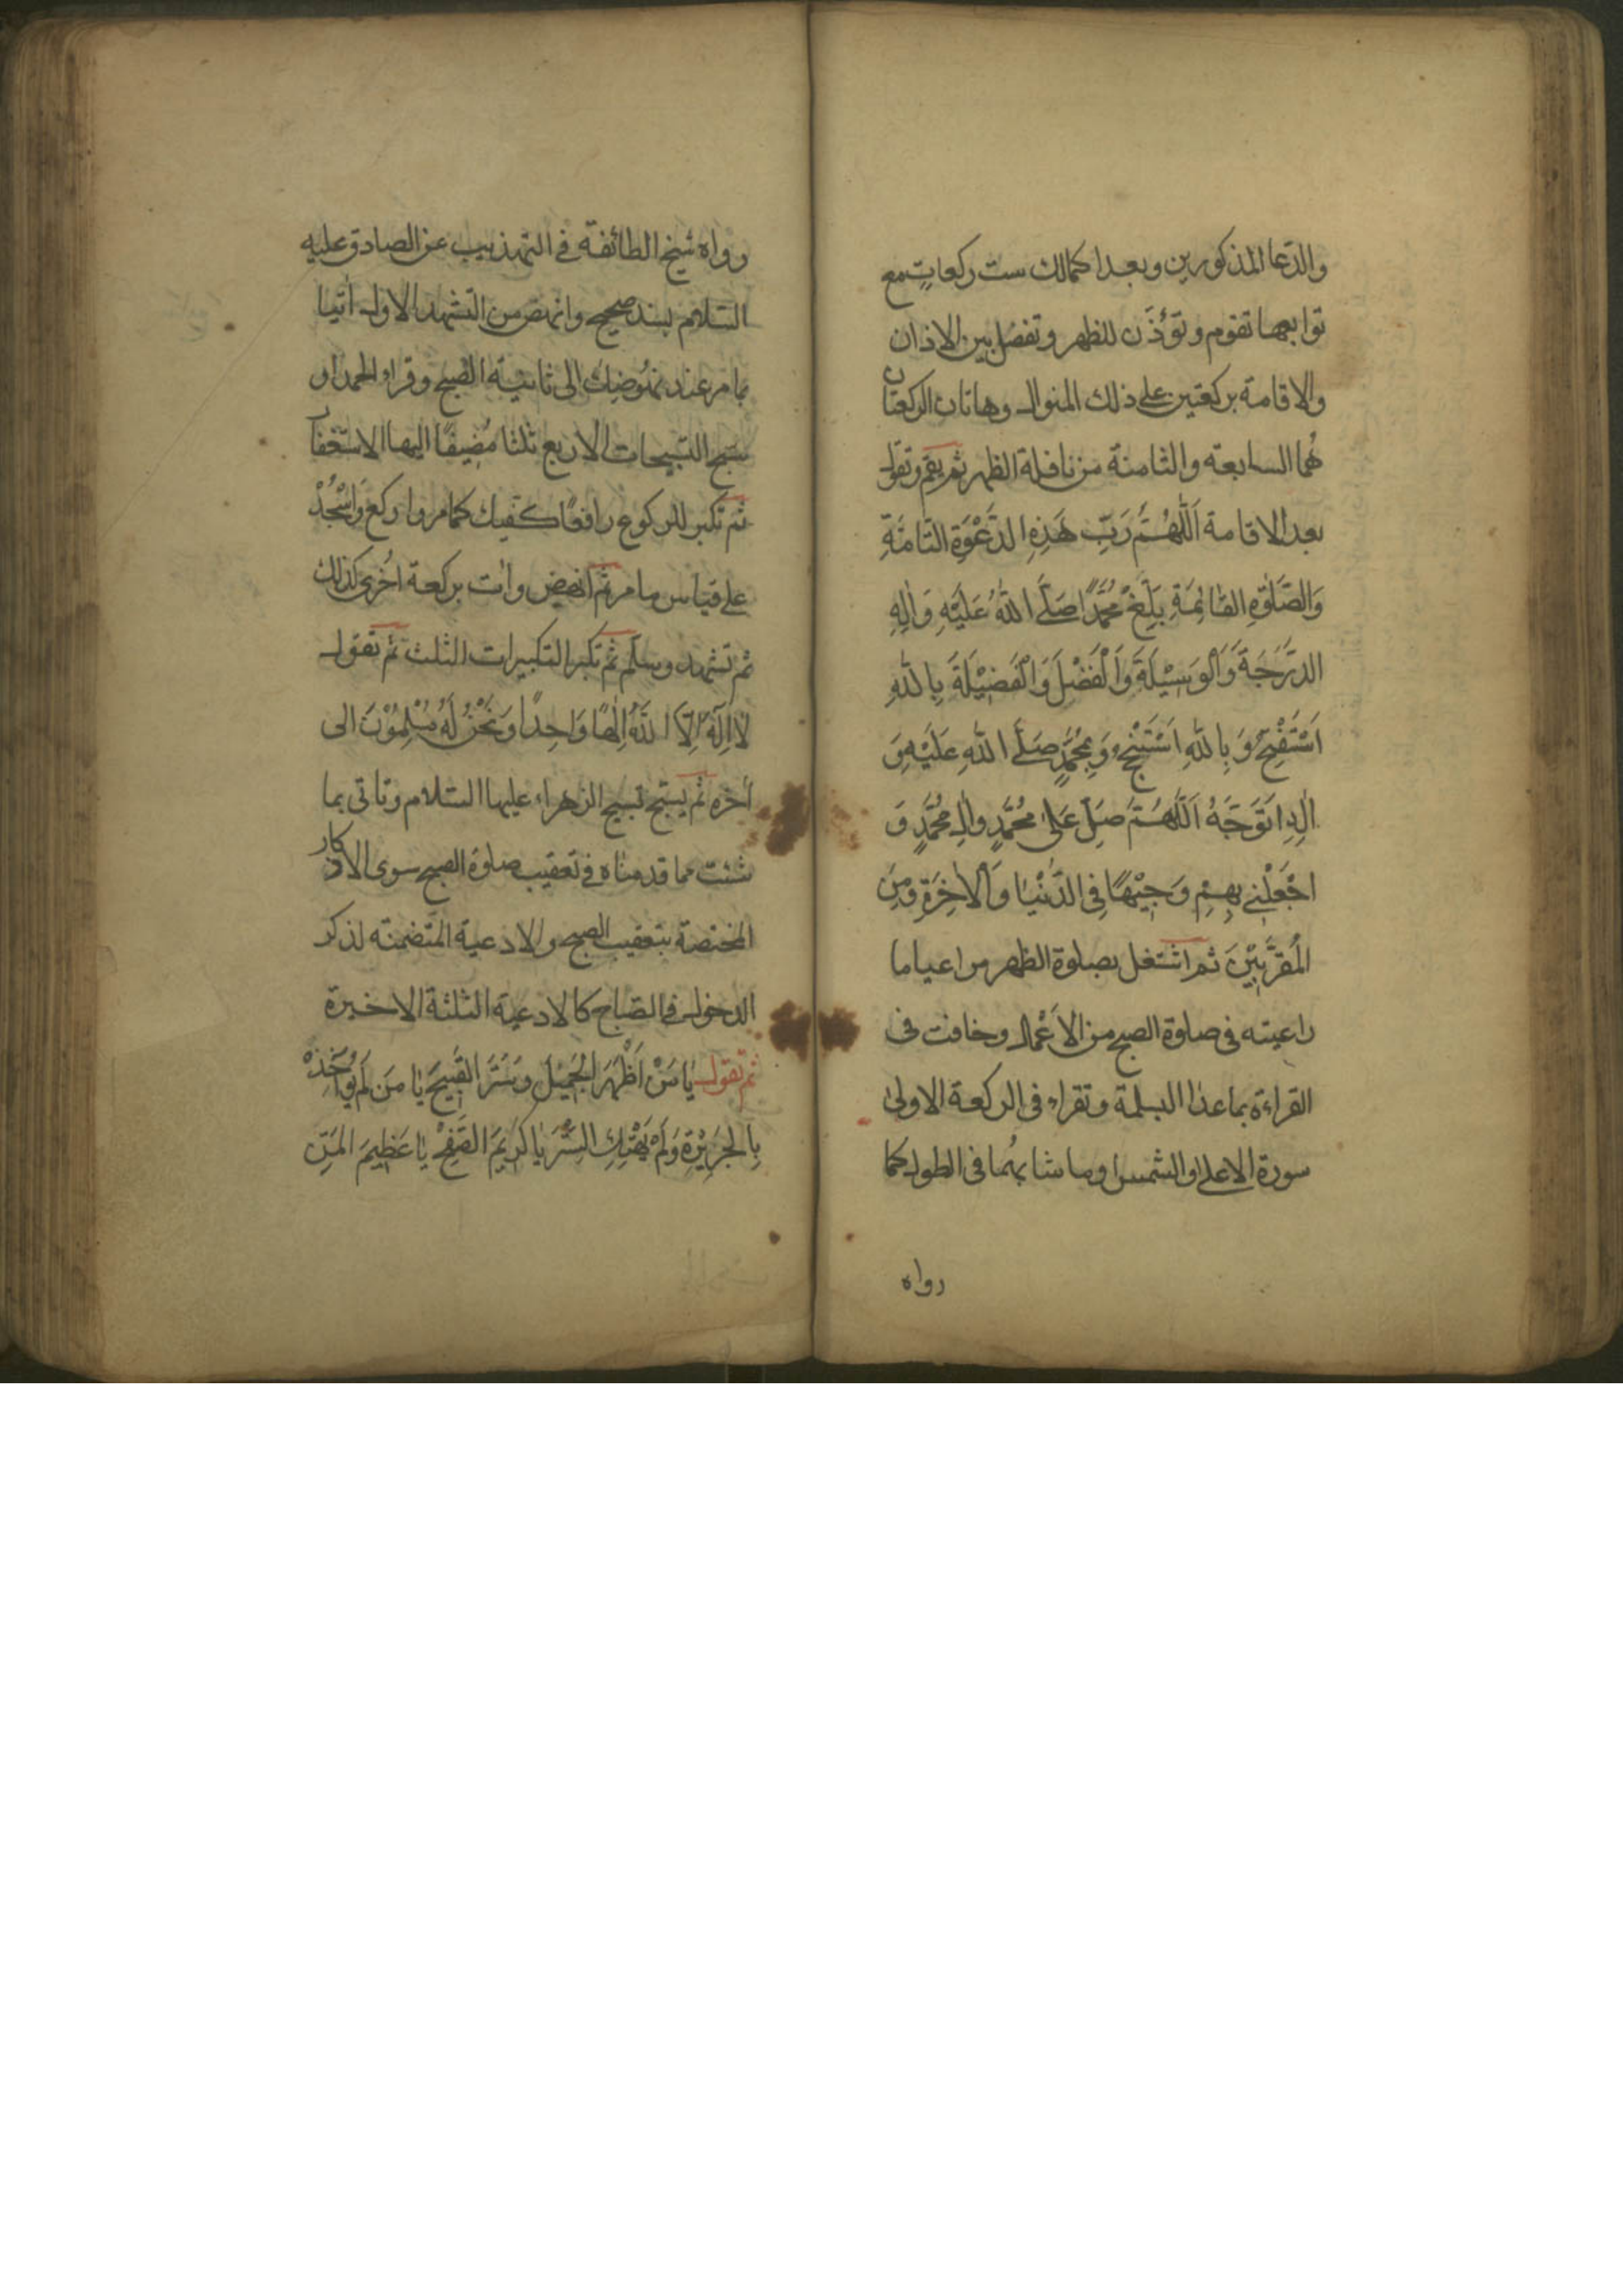 والدعا المذكورين وبعد اكمالك ست ركعاتٍ مع
توابعها تقوم وتؤذّن للظهر وتفصل بين الاذان
والاقامة بركعتين على ذلك المنوال وهاتان الركعتان
هُما السابعة والثامنة من نافلة الظهر ثم يقم وتقول
بعد الاقامة اَللّٰهُمَّ رَبِّ هَذِهِ الدَّعْوَةِ التَّامَّةِ
وَالصَّلٰوةِ القَائِمَةِ بَلِّغْ مُحَمَّدًا صَلَّى اللهُ عَلَيْهِ وَاٰلِهِ
الدَّرَجَةَ وَالْوَسِيْلَةَ وَالْفَضْلَ وَالْفَضِيْلَةَ بِاللهِ
اَسْتَفْتِحُ وَبِاللهِ اَسْتَنْجِحُ وَبِمُحَمَّدٍ صَلَّى اللهِ عَلَيْهِ وَ
اٰلِهِ اَتَوَجَّهُ اَللّٰهُمَّ صَلِّ عَلٰى مُحَمَّدٍ وَاٰلِ مُحَمَّدٍ وَ
اجْعَلْنِي بِهِمْ وَجِيْهًا فِي الدُّنْيَا وَالْاٰخِرَةِ وَمِنَ
الْمُقَرَّبِيْنَ ثم اشتغل بصلوة الظهر مراعيا ما
راعيته في صلوة الصبح من الاَعْمال وخافت في
القراءة بما عدا البسلمة وتقراء في الركعة الاولى
سورة الاعلى او الشمس او ما شابهُما في الطول كما
رواه
رواه شيخ الطائفة في التهذيب عن الصادق عليه
السلام بسند صحيح وانهض من التشهد الاول اٰتيا
بما مر عند نهوضك الى ثانية الصبح وقراء الحمد او
سبح التسبيحات الاربع ثلثا مُضيفًا اليها الاستغفار
ثم تكبر للركوع رافعًا كفيك كما مر واركع وَاسْجُدْ
على قياس ما مر ثم انهض وائت بركعة اُخرى كذلك
ثم تشهد وسلّم ثم تكبر التكبيرات الثلث ثم تقول
لَا اِلٰهَ اِلَّا اللهُ اِلٰهًا وَاحِدًا وَنَحْنُ لَهُ مُسْلِمُوْنَ الى
اٰخره ثم يسبّح تسبيح الزهراء عليها السلام وتاتى بما
شئت مما قدمناه في تعقيب صلوة الصبح سوى الاذكار
المختصة بتعقيب الصبح والادعية المتضمنه لذكر
الدخول في الصّباح كالادعية الثلثة الاخيرة
ثم تقول يَا مَنْ اَظْهَرَ الْجَمِيْلَ وَسَتَرَ القَبِيْحَ يَا مَنْ لَمْ يُؤَاخِذْ
بِالْجَرِيْرَةِ وَلَمْ يَهْتِكِ السِّتْرَ يَا كَرِيْمَ الصَّفْحِ يَا عَظِيْمَ المَنِّ